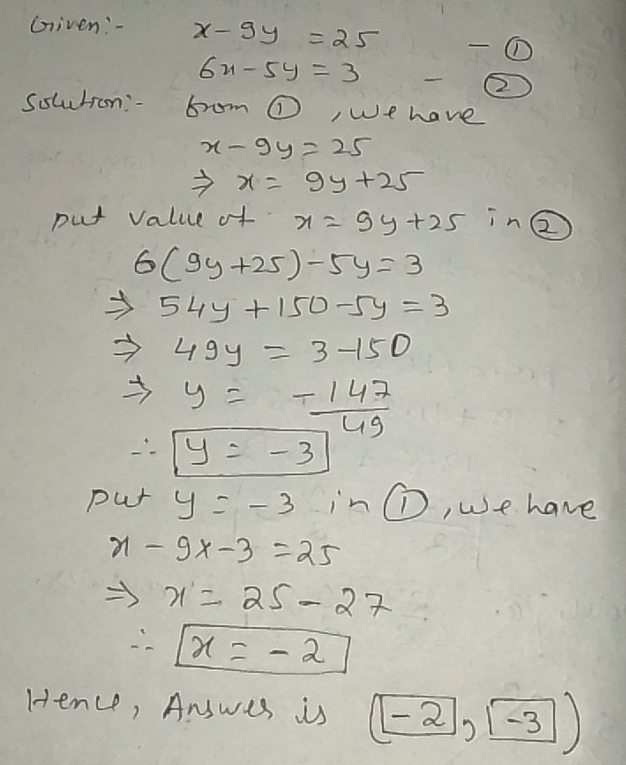 Given:- x-9y = 25 - ①
6x-5y = 3 - ②
Solution:- from ①, we have
x-9y = 25
⇒ x = 9y+25
put value of x = 9y+25 in ②
6(9y+25)-5y=3
⇒ 54y+150-5y=3
⇒ 49y = 3-150
⇒ y = -147/49
∴ y = -3
put y = -3 in ①, we have
x - 9x-3 = 25
⇒ x = 25-27
∴ x = -2
Hence, Answer is (-2, -3)